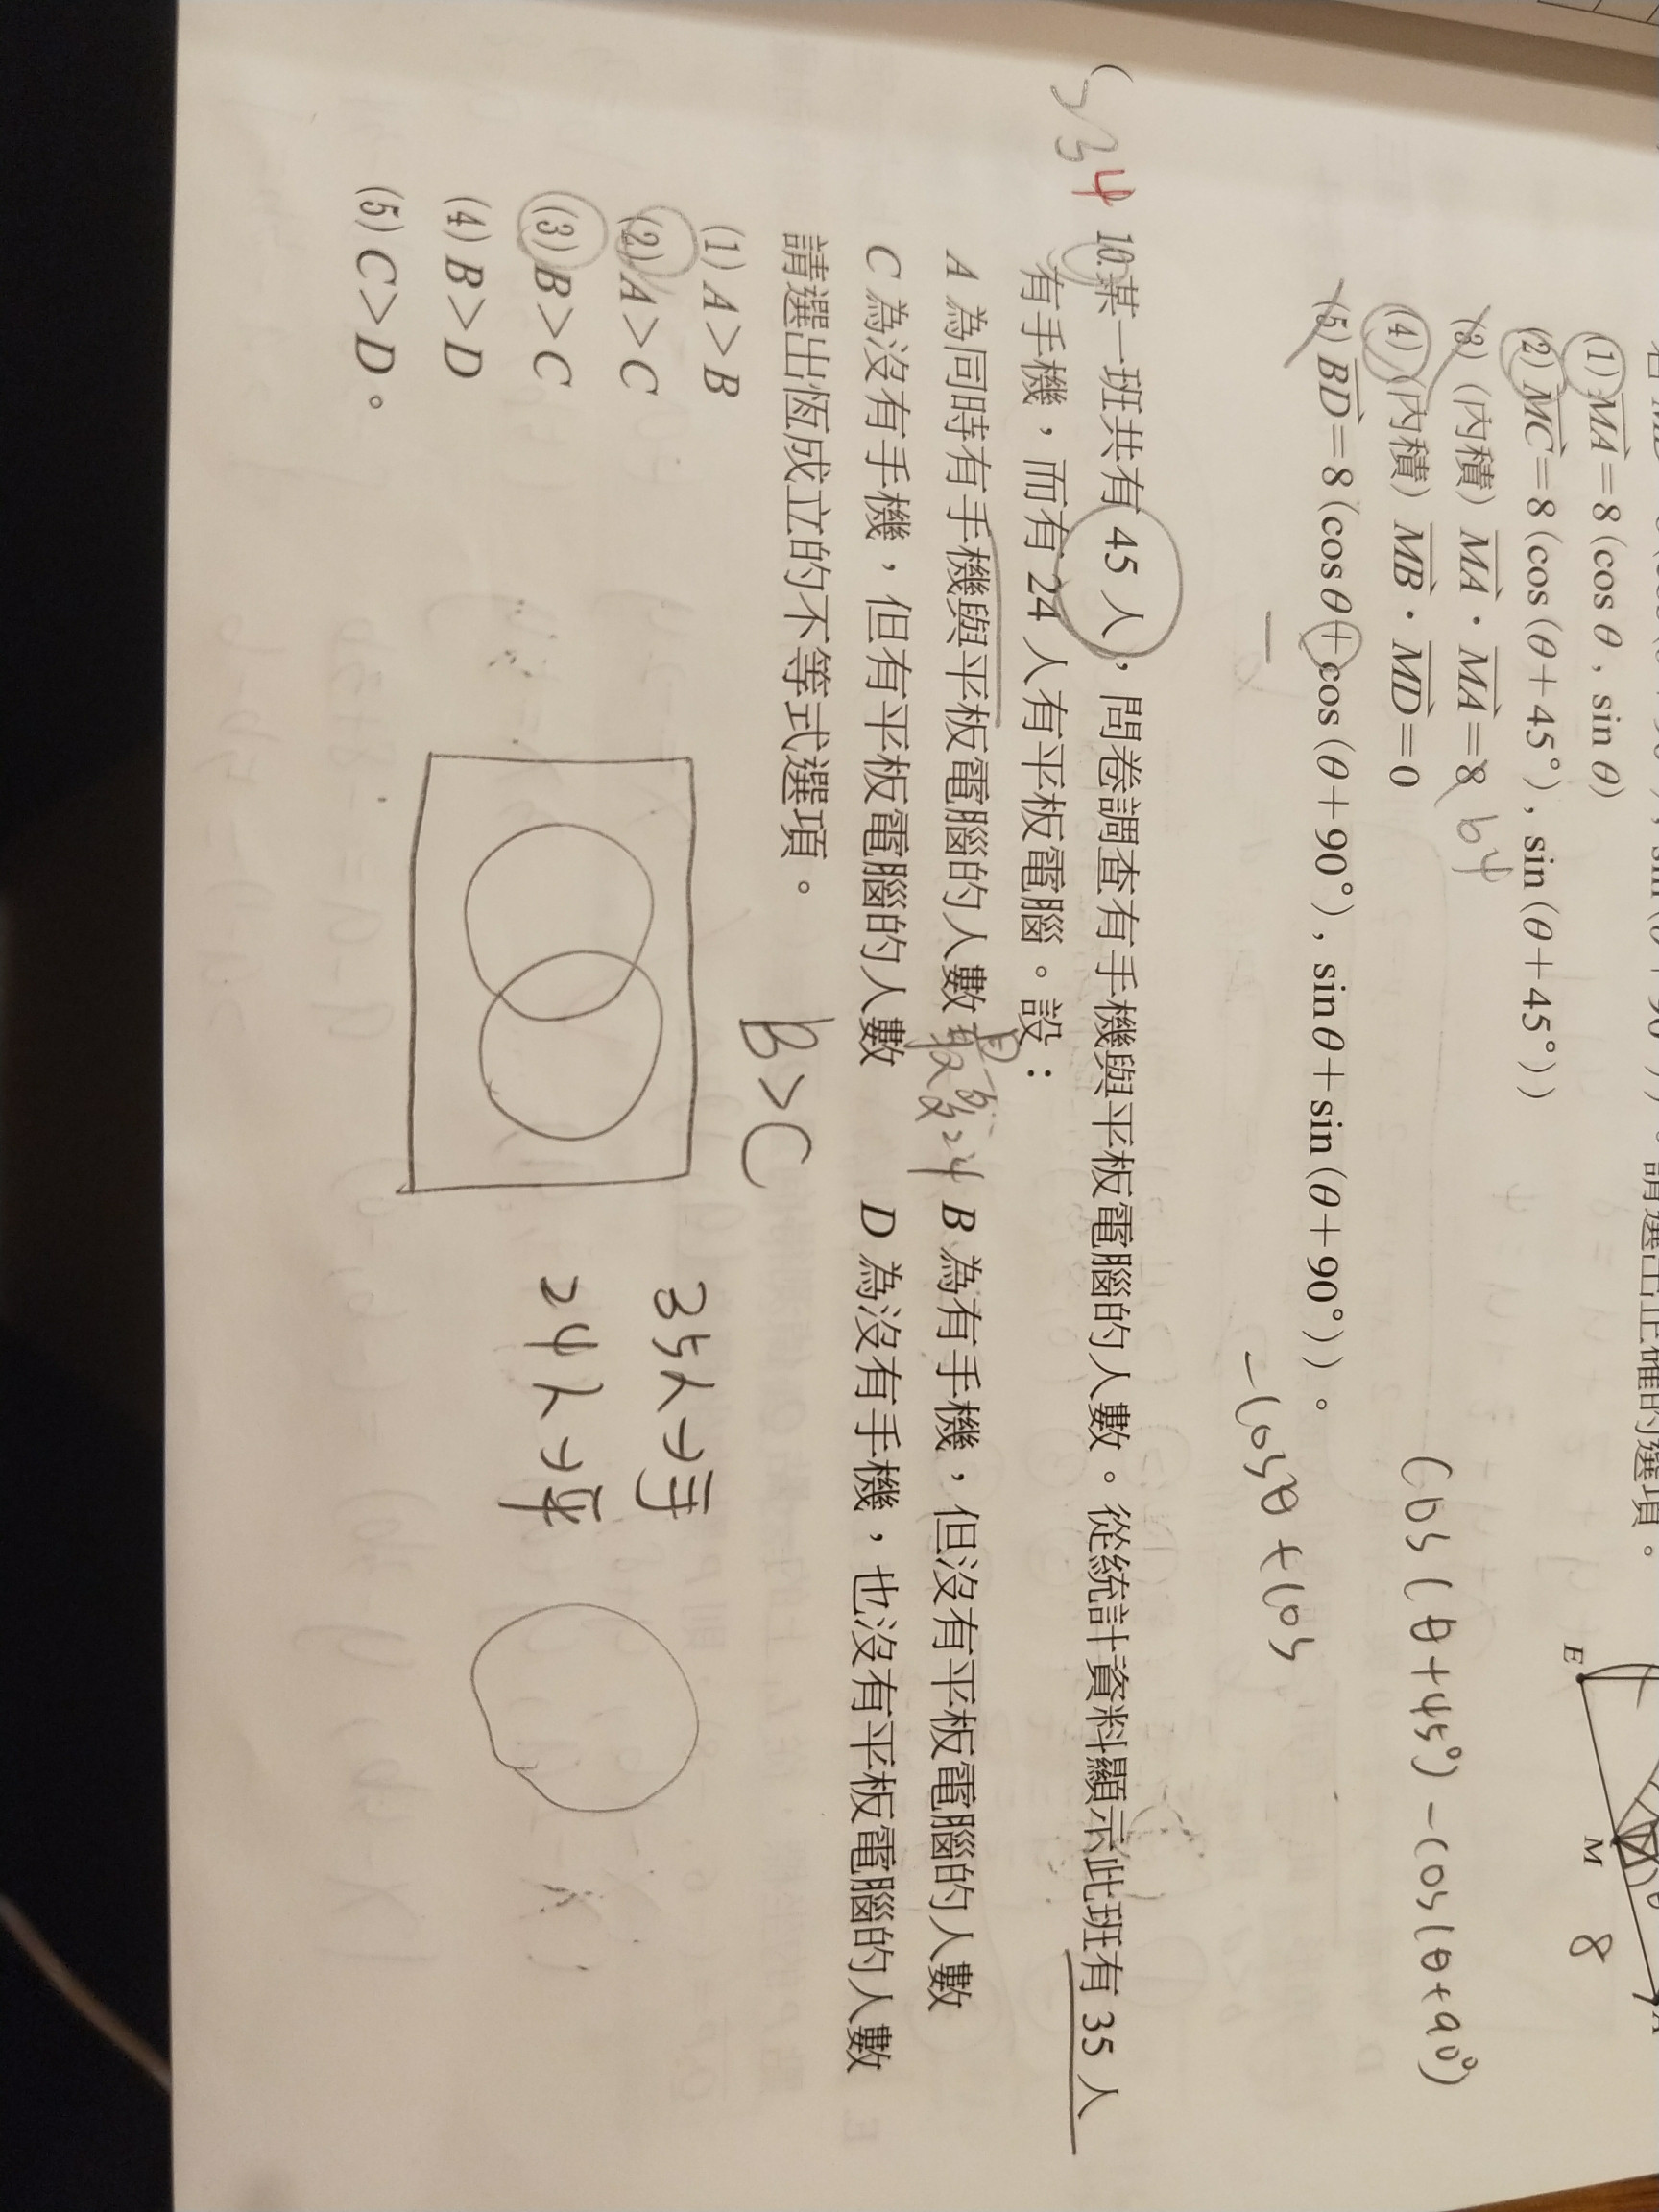 請選出正確的選項。
(1) MA=8(cosθ, sinθ)
(2) MC=8(cos(θ+45°), sin(θ+45°))
(3) (內積) MA·MA=8 64
(4) (內積) MB·MD=0
(5) BD=8(cosθ+cos(θ+90°), sinθ+sin(θ+90°))。
E
M
8
cos(θ+45°)-cos(θ+90°)
-cosθ+cos
234
10.某一班共有 45 人,問卷調查有手機與平板電腦的人數。從統計資料顯示此班有 35 人
有手機,而有 24 人有平板電腦。設:
A 為同時有手機與平板電腦的人數 最多24 B 為有手機,但沒有平板電腦的人數
C 為沒有手機,但有平板電腦的人數 D 為沒有手機,也沒有平板電腦的人數
請選出恆成立的不等式選項。
(1) A>B
(2) A>C
(3) B>C
(4) B>D
(5) C>D。
B>C
35人→手
24人→平